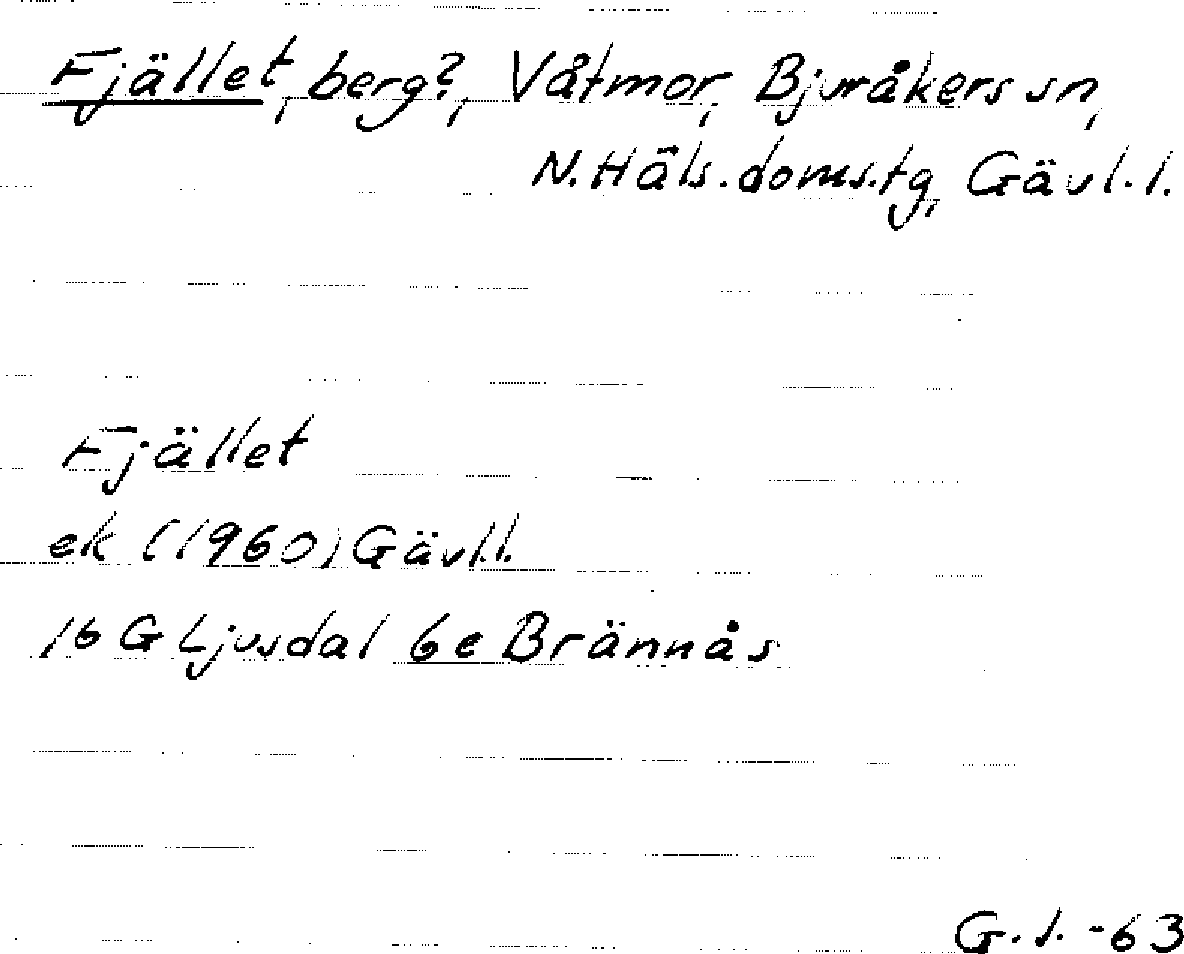 Fjället, berg?, Våtmor, Bjuråkers sn,
N. Häls. doms.tg, Gävl. l.
Fjället
ek (1960) Gävl.l.
16 G Ljusdal 6e Brännås
G. l. -63